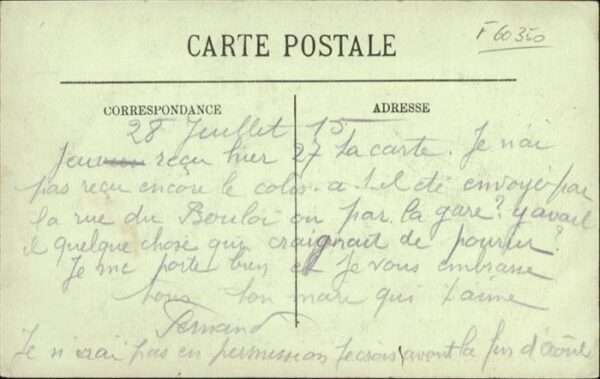 F 60350
CARTE POSTALE
CORRESPONDANCE
ADRESSE
28 Juillet 15
reçu hier 27 ta carte. Je n'ai
pas reçu encore le colis. a t-il été envoyé par
la rue du Bouloi ou par la gare? y avait
il quelque chose qui craignait de pourrir?
Je me porte bien et je vous embrasse
tous ton mari qui t'aime
Fernand
Je n'irai pas en permission je crois avant la fin d'août